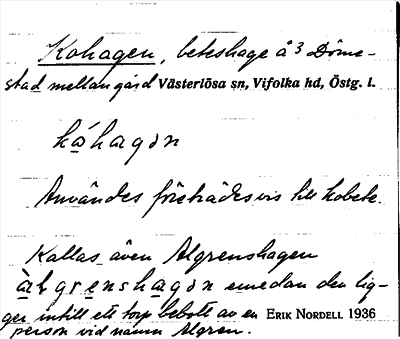 Kohagen, beteshage å ³ Döme-
stad mellangård Västerlösa sn, Vifolka hd, Östg. l.
kȧ́hagən
Användes företrädesvis till kobete.
Kallas även Algrenshagen
àlgrenshagən emedan den lig-
ger intill ett torp bebott av en ERIK NORDELL 1936
person vid namn Algren.